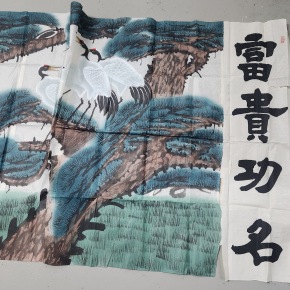 富貴功名